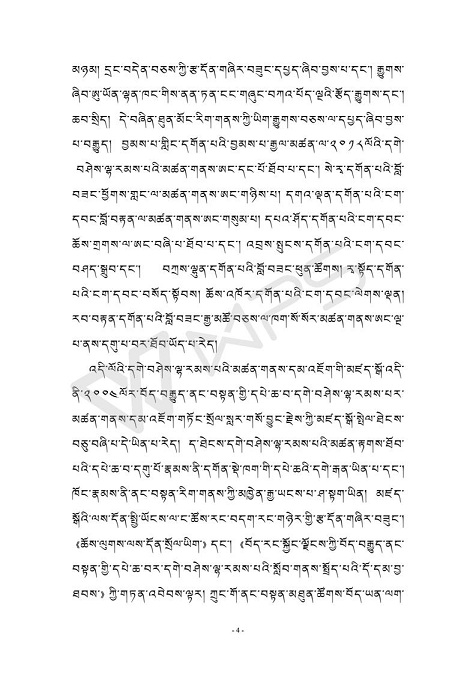 མཉམ། དྲང་བདེན་བཅས་ཀྱི་རྩ་དོན་གཞིར་བཟུང་དཔྱད་ཞིབ་བྱས་པ་དང་། རྒྱུགས་
ཞིབ་ཨུ་ཡོན་ལྷན་ཁང་གིས་ནན་ཏན་ངང་གཞུང་བཀའ་པོད་ལྔའི་རྩོད་རྒྱུགས་དང་།
ཆབ་སྲིད། དེ་བཞིན་ཐུན་མོང་རིག་གནས་ཀྱི་ཡིག་རྒྱུགས་བཅས་ལ་དཔྱད་ཞིབ་བྱས་
པ་བརྒྱུད། བྱམས་པ་གླིང་དགོན་པའི་བྱམས་པ་རྒྱལ་མཚན་ལ་༢༠༡༨ལོའི་དགེ་
བཤེས་ལྷ་རམས་པའི་མཚན་གནས་ཨང་དང་པོ་ཐོབ་པ་དང་། སེ་ར་དགོན་པའི་བློ་
བཟང་ཕྱོགས་གླང་ལ་མཚན་གནས་ཨང་གཉིས་པ། དགའ་ལྡན་དགོན་པའི་ངག་
དབང་བློ་བརྟན་ལ་མཚན་གནས་ཨང་གསུམ་པ། དཔའ་ཤོད་དགོན་པའི་ངག་དབང་
ཆོས་གྲགས་ལ་ཨང་བཞི་པ་ཐོབ་པ་དང་། འབྲས་སྤུངས་དགོན་པའི་ངག་དབང་
བཤད་སྒྲུབ་དང་། བཀྲས་ལྷུན་དགོན་པའི་བློ་བཟང་ཕུན་ཚོགས། རྭ་སྟོད་དགོན་
པའི་ངག་དབང་བསོད་སྟོབས། ཆོས་འཁོར་དགོན་པའི་ངག་དབང་ལེགས་ལྡན།
རབ་བརྟན་དགོན་པའི་བློ་བཟང་རྒྱ་མཚོ་བཅས་ལ་ཁག་སོ་སོར་མཚན་གནས་ཨང་ལྔ་
པ་ནས་དགུ་པ་བར་ཐོབ་ཡོད་པ་རེད།
འདི་ལོའི་དགེ་བཤེས་ལྷ་རམས་པའི་མཚན་གནས་དམ་འཇོག་གི་མཛད་སྒོ་འདི་
ནི་༢༠༠༤ལོར་བོད་བརྒྱུད་ནང་བསྟན་གྱི་དཔེ་ཆ་བ་དགེ་བཤེས་ལྷ་རམས་པར་
མཚན་གནས་དམ་འཇོག་གཏོང་སྲོལ་སླར་གསོ་བྱུང་རྗེས་ཀྱི་མཛད་སྒོ་སྤེལ་ཐེངས་
བཅུ་བཞི་པ་དེ་ཡིན་པ་རེད། ད་ཐེངས་དགེ་བཤེས་ལྷ་རམས་པའི་མཚན་རྟགས་ཐོབ་
པའི་དཔེ་ཆ་བ་དགུ་པོ་རྣམས་ནི་དགོན་སྡེ་ཁག་གི་དཔེ་ཆའི་དགེ་རྒན་ཡིན་པ་དང་།
ཁོང་རྣམས་ནི་ནང་བསྟན་རིག་གནས་ཀྱི་མཁྱེན་རྒྱ་ཡངས་པ་ཤ་སྟག་ཡིན། མཛད་
སྒོའི་ལས་དོན་སྤྱི་ཡོངས་ལ་ང་ཚོས་རང་བདག་རང་གཉེར་གྱི་རྩ་དོན་གཞིར་བཟུང་།
《ཆོས་ལུགས་ལས་དོན་སྲོལ་ཡིག་》དང་། 《བོད་རང་སྐྱོང་ལྗོངས་ཀྱི་བོད་བརྒྱུད་ནང་
བསྟན་གྱི་དཔེ་ཆ་བར་དགེ་བཤེས་ལྷ་རམས་པའི་སློབ་གནས་སྤྲོད་པའི་དོ་དམ་བྱ་
ཐབས་》ཀྱི་གཏན་འབེབས་ལྟར། ཀྲུང་གོ་ནང་བསྟན་མཐུན་ཚོགས་བོད་ཡན་ལག་
- 4 -
WPS